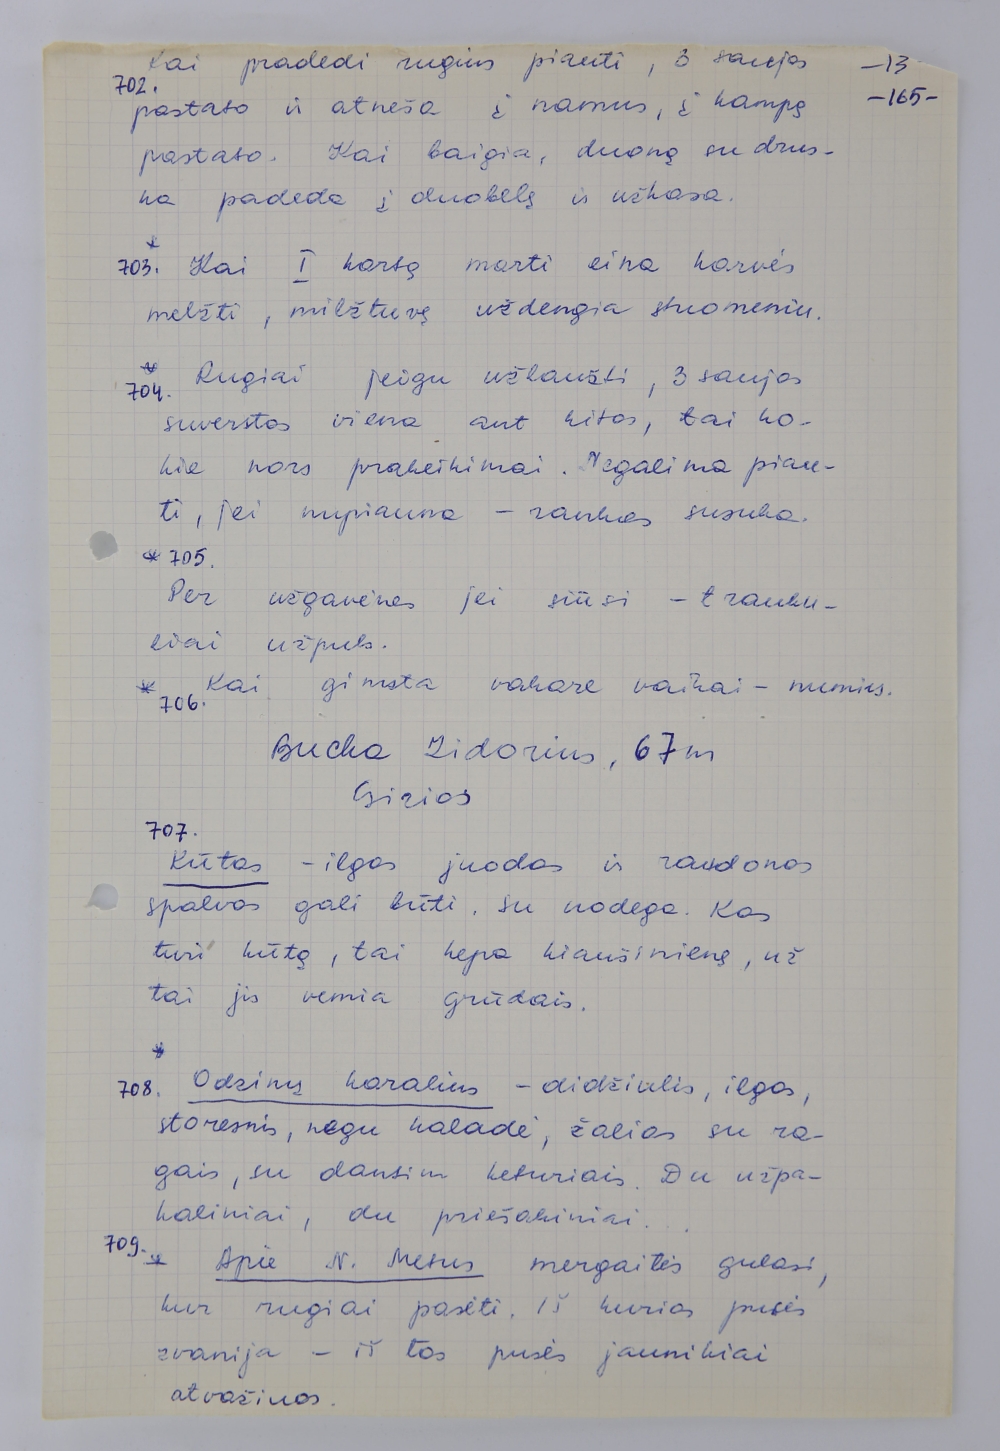 Kai pradedi rugius piauti, 3 saujas -13
702. pastato ir atneša į namus, į kampą -165-
pastato. Kai baigia, duoną su drus-
ka padeda į duobelę ir užkasa.
*
703. Kai I kartą marti eina karvės
melžti, milžtuvę uždengia stuomeniu.
*
704. Rugiai jeigu užlaužti, 3 saujos
suverstos viena ant kitos, tai ko-
kie nors prakeikimai. Negalima piau-
ti, jei nupiauna – rankas susuka.
* 705.
Per užgavėnes jei siūsi – trauku-
liai užpuls.
* 706. Kai gimsta vakare vaikai – numirs.
Bucka Zidorius, 67 m
Girios
707.
Kūtas – ilgas juodas ir raudonas
spalvos gali būti, su uodega. Kas
turi kūtą, tai kepa kiaušinienę, už
tai jis vemia grūdais.
*
708. Odzinų karalius – didžiulis, ilgas,
storesnis, negu kaladė, žalias su ra-
gais, su dantim keturiais. Du užpa-
kaliniai, du priešakiniai.
709. * Apie N. Metus mergaitės gulasi,
kur rugiai pasėti. Iš kurios pusės
zvanija – iš tos pusės jaunikiai
atvažiuos.